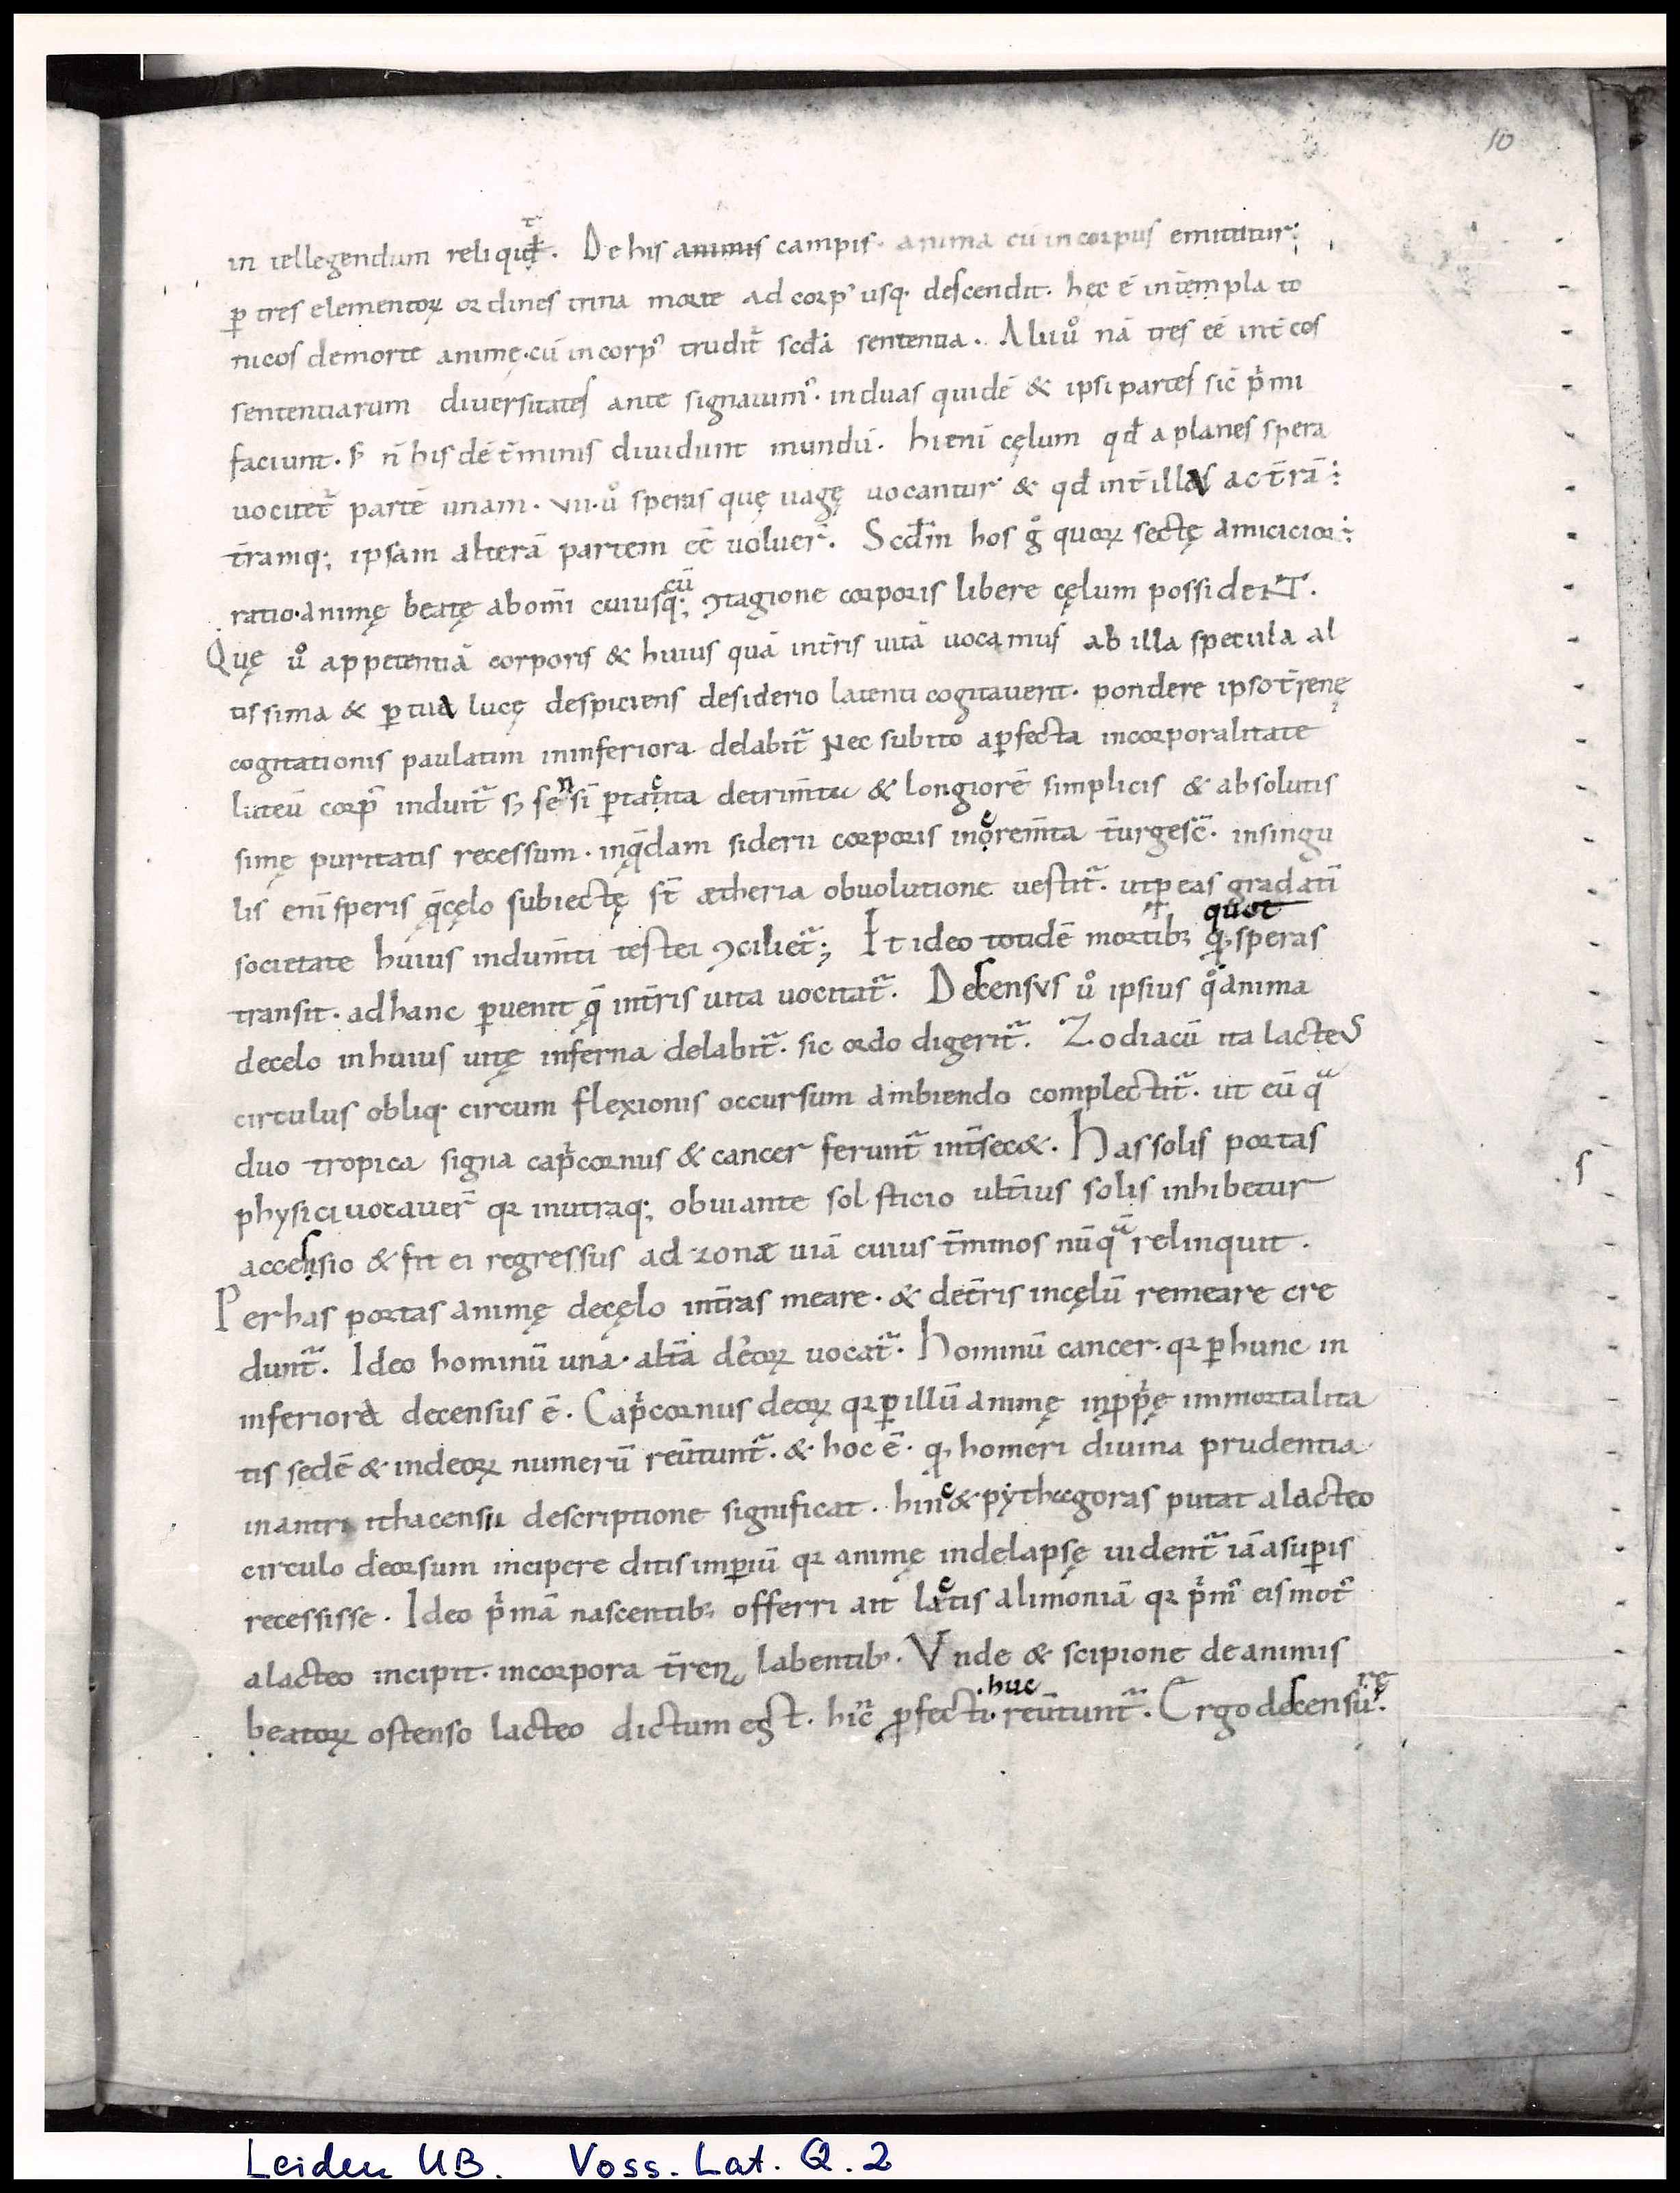 10
in iellegendum reliqud̄. De his animis campis. anima cū in corpus emittitur
ꝑ tres elementoꝝ ordines trina morte ad corpꝰ usq; descendit. hęc ē int̄ empla to
nicos demorte animę. cū in corpꝰ trudit᷑ scd̄a sententia. Aliu̾ nā tres eē int̄ eos
sententiarum diuersitates ante signauimꝰ. induas quidē & ipsi partes sic̄ p̾mi
faciunt. s; n̄ his dē t̄minis diuidunt mundū. hi enī cęlum qd̄ a planes spera
uocitet᷑ partē unam. vii. u̾ speras quę uagę uocantur & qd̄ int̄ illas ac t̄rā
t̄ramq; ipsam alterā partem eē uoluer̄. Scd̄m hos g̾ quoꝝ sectę amicicior
ratio. animę beatę abomī cuiusq; cū ꝯtagione corporis libere cęlum possideNT.
Quę u̾ appetentiā corporis & huius quā int̄ris uitā uocamus ab illa specula al
tissima & ꝑtua lucę despiciens desiderio latenti cogitauerit. pondere ipso t̄renę
cogitationis paulatim ininferiora delabit᷑ Nec subito aꝑfecta incorporalitate
luteū corpꝰ induit᷑ s; sensī ꝑtacita detrim̄ta & longiorē simplicis & absolutis
simę puritatis recessum. inq̄dam siderii corporis increm̄ta t̄urgesc̄. insingu
lis enī speris q̄ cęlo subiectę st̄ ætheria obuolutione uestit᷑. utꝑ eas gradatī
quot
societate huius indum̄ti testei ꝯciliet᷑; It ideo totidē mortib; q; speras
transit. adhanc ꝑuenit q̄ int̄ris uita uocitat᷑. Descensus u̾ ipsius q̊ anima
decelo inhuius uitę inferna delabit᷑. sic ordo digerit᷑. Zodiacū ita lacteus
circulus obliq; circum flexionis occursum ambiendo complectit᷑. ut eū qᵃ
duo tropica signa cap̾cornus & cancer ferunt᷑ int̄sec&. Has solis portas
physici uocauer̄ qꝛ inutraq; obuiante sol sticio ult̄ius solis inhibetur
accessio & fit ei regressus ad zonæ uiā cuius t̄minos nūqᵃ̄ relinquit.
Per has portas animę decęlo int̄ras meare. & det̄ris incęlū remeare cre
dunt᷑. Ideo hominū una. alt̄a deoꝝ uocat᷑. Hominū cancer. qꝛ ꝑ hunc in
inferiora decensus ē. Cap̾cornus deoꝝ qꝛ ꝑ illū animę inp̱p̾ę immortalita
tis sedē & indeoꝝ numerū reūtunt᷑. & hoc ē. q; homeri diuina prudentia
inantri ithacensii descriptione significat. hinc & pythagoras putat alacteo
circulo deorsum incipere ditis imꝑiū qꝛ animę indelapsę uident᷑ iā asuꝑis
recessisse. Ideo p̾mā nascentib; offerri ait lactis alimoniā qꝛ p̾mꝰ eis motꝰ
alacteo incipit. incorpora t̄ren̨ labentibꝰ. Vnde & scipione deanimis
huc rę
beatoꝝ ostenso lacteo dictum est. hic̄ ꝑfecti. reūtunt᷑. Ergo descensū.
Leiden UB. Voss. Lat. Q. 2